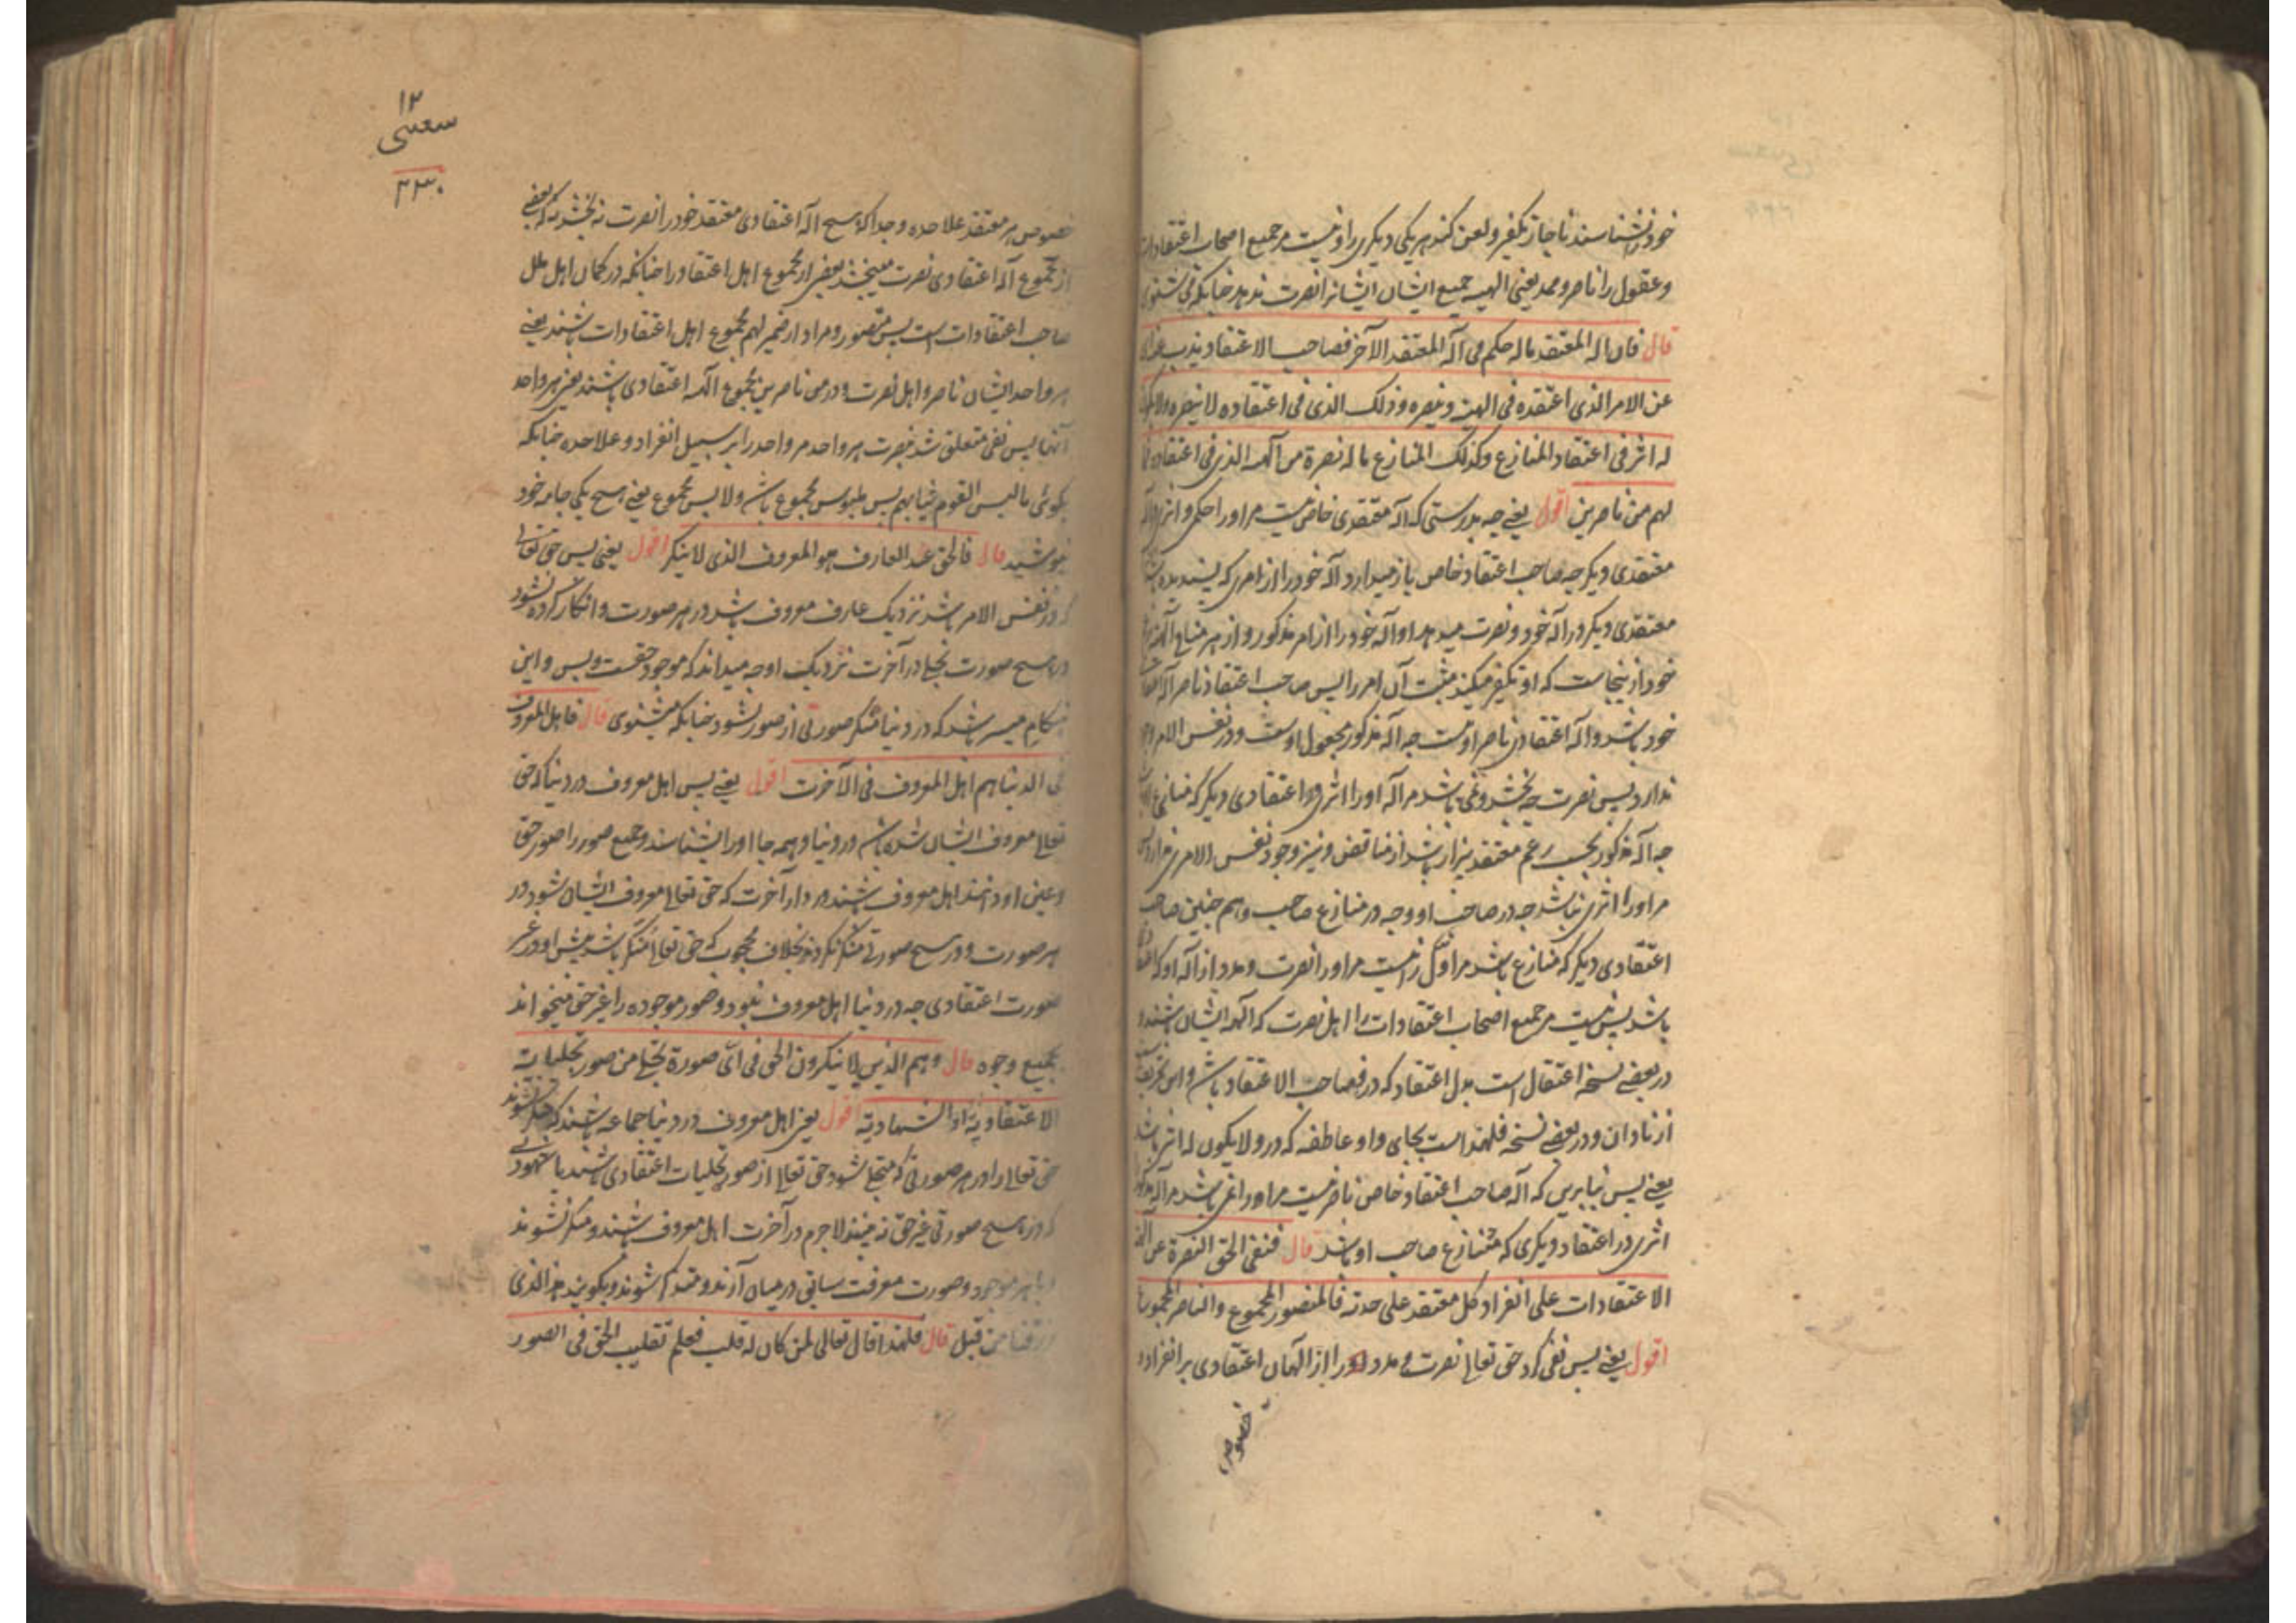 خود را نشناسند ناچار تکفیر و لعن کنند هر یکی دیگری را و نیست مر جمیع اصحاب اعتقادات
و عقول را ناصر و ممد یعنی الهیه جمیع ایشان ایشانرا نصرت ندهد چنانکه می شنوی
قال فان اله المعتقد ماله حکم فی اله المعتقد الآخر فصاحب الاعتقاد یذب عنه ای
عن الامر الذی اعتقده فی الهه و ینصره و ذلک الذی فی اعتقاده لا ینصره و لا یکون
له اثر فی اعتقاد المنازع و کذلک المنازع ماله نصرة من الهه الذی فی اعتقاده فما
لهم من ناصرین اقول یعنی چه بدرستی که اله معتقدی خاص نیست مر او را حکم و اثر در اله
معتقدی دیگر چه صاحب اعتقاد خاص باز میدارد اله خود را از امری که
معتقدی دیگر در اله خود و نصرت میدهد او اله خود را از امر مذکور و از هر
خود از اینجاست که او تکفیر میکند مثبت آن امر را پس صاحب اعتقاد ناصر اله
خود باشد و اله اعتقادی ناصر او نیست چه اله مذکور مجعول اوست و در نفس الامر وجود
ندارد پس نصرت چه بخشد و نمی باشد مر اله او را اثری در اعتقادی دیگر که منازع
چه اله مذکور بحسب زعم معتقد بیزار باشد از مناقض و نیز وجود نفس الامری ندارد پس
مر او را اثری نباشد چه در صاحب او و چه در منازع صاحب و هم چنین صاحب
اعتقادی دیگر که منازع باشد مر اول را نیست مر او را نصرت و مدد از اله او که
باشد پس نیست مر جمیع اصحاب اعتقادات را اهل نصرت که الهه ایشان باشند و
در بعضی نسخه اعتقال است بدل اعتقاد که در فصاحب الاعتقاد باشد و این
از نادان و در بعضی نسخه فلهذا است بجای واو عاطفه که در و لا یکون له اثر باشد
یعنی پس بنابرین که اله صاحب اعتقاد خاص ناصر نیست مر او را نمی باشد مر اله مذکور
اثری در اعتقاد دیگری که متنازع صاحب او باشد قال فنفی الحق النصرة عن آلهة
الاعتقادات علی انفراد کل معتقد علی حدته فالمنصور المجموع و الناصر المجموع
اقول یعنی پس نفی کرد حق تعالی نصرت و مدد را از الهان اعتقادی بر انفراد
خصوص
۱۲
سعسی
۲۳۰
خصوص هر معتقد علاحده و جدا که هیچ اله اعتقادی معتقد خود را نصرت نه بخشد نه که بعضی
از مجموع اله اعتقادی نصرت می بخشد بعضی از مجموع اهل اعتقاد را چنانکه در کمان اهل ملل
صاحب اعتقادات است پس منصور و مراد از ضمیر لهم مجموع اهل اعتقادات باشند یعنی
هر واحد ایشان ناصر و اهل نصرت و در من ناصرین مجموع الهه اعتقادی باشند یعنی هر واحد
آنها پس نفی متعلق شد بنصرت هر واحد مر واحد را بر سبیل انفراد و علاحده چنانکه
بگوئی ما لبس القوم ثیابهم پس ملبوس مجموع باشد و لابس مجموع یعنی هیچ یکی جامه خود
نپوشید قال فالحق عند العارف هو المعروف الذی لا ینکر اقول یعنی پس حق تعالی
که در نفس الامر باشد نزدیک عارف معروف باشد در هر صورت و انکار کرده نشود
در هیچ صورت تجلی در آخرت نزدیک او چه میداند که موجود حقست و بس و این
هنگام میسر باشد که در دنیا منکر صورتی از صور نشود چنانکه میشنوی قال فاهل المعروف
فی الدنیا هم اهل المعروف فی الآخرت اقول یعنی پس اهل معروف در دنیا که حق
تعالی معروف ایشان شده باشد در دنیا و همه جا او را بشناسند و جمیع صور را صور حق
و عین او دانند اهل معروف باشند در دار آخرت که حق تعالی معروف ایشان شود در
هر صورت و در هیچ صورتی منکر نکردند بخلاف محجوب که حق تعالی منکر باشد پیش او در غیر
صورت اعتقادی چه در دنیا اهل معروف نبود و صور موجوده را غیر حق میخواند
بجمیع وجوه قال و هم الذین لا ینکرون الحق فی ای صورة تجلی من صور تجلیاته
الاعتقادیة او الشهادیة اقول یعنی اهل معروف در دنیا جماعه باشند که منکر نشوند
حق تعالی را در هر صورتی که متجلی شود حق تعالی از صور تجلیات اعتقادی باشند یا شهودی
که در هیچ صورتی غیر حق نه بینند لاجرم در آخرت اهل معروف باشند و منکر نشوند
و با هر موجود و صورت معرفت سابق در میان آرند و متذکر شوند و بگویند هذا الذی
رزقنا من قبل قال فلهذا قال تعالی لمن کان له قلب فعلم تقلیب الحق فی الصور